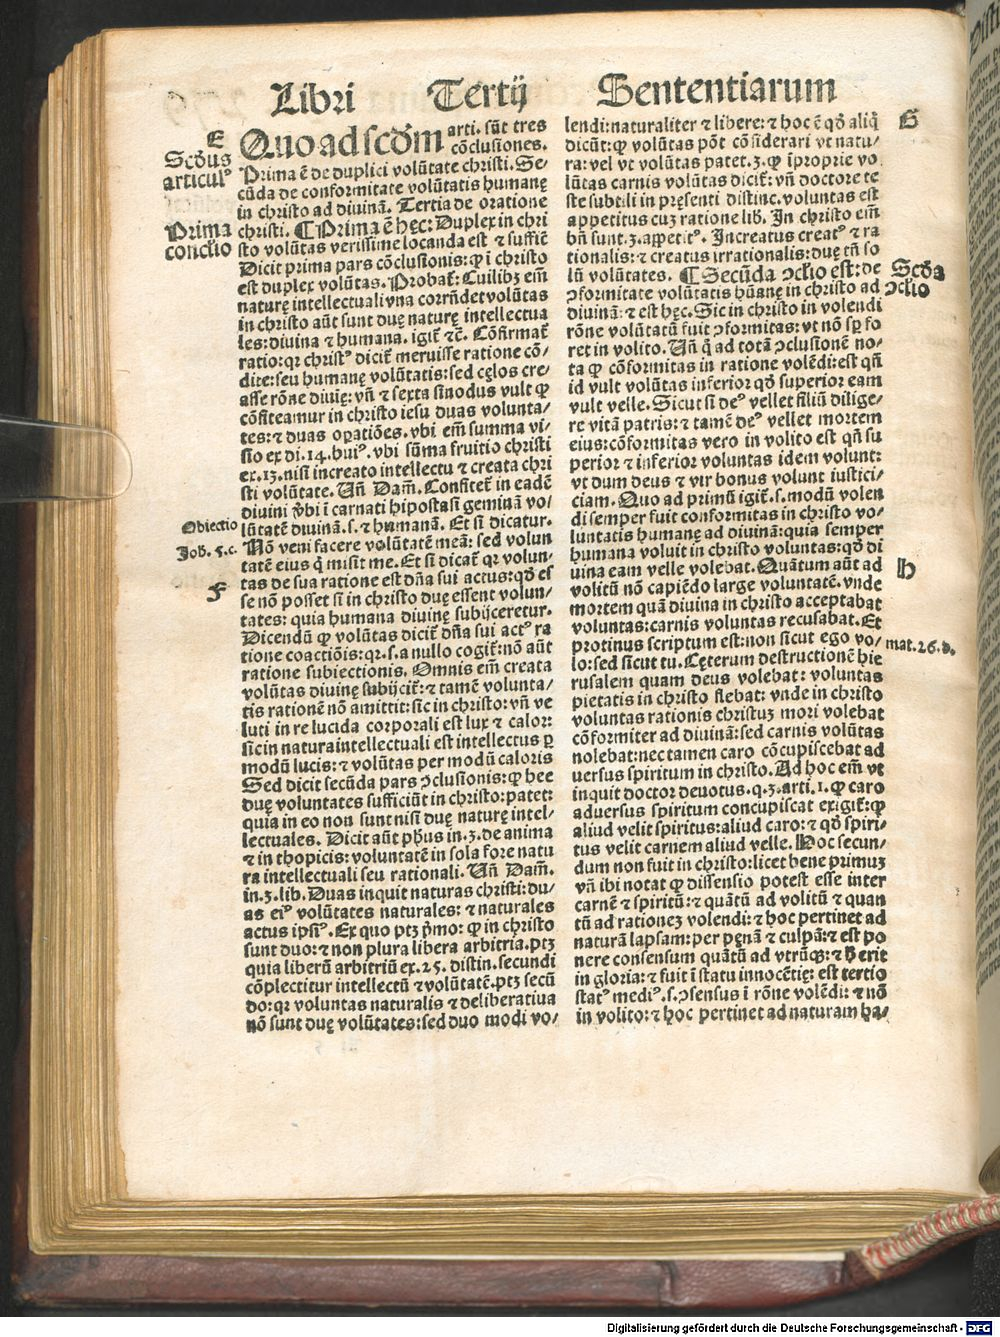 Libri Tertij Sententiarum
E
Scd̄us
articulꝰ
Quo ad scd̄m arti. sūt tres
cōclusiones.
Prima ē de duplici volūtate christi. Se-
cūda de conformitate volūtatis humanę
in christo ad diuinā. Tertia de oratione
Prima
conclio
christi. ¶ Prima ē hęc: Duplex in chri
sto volūtas verissime locanda est ⁊ suffiē
Dicit prima pars cōclusionis: ꝙ i christo
est duplex volūtas. Probat̄: Cuilibꝫ em̄
naturę intellectuali vna corrn̄det volūtas
in christo aūt sunt duę naturę intellectua
les: diuina ⁊ humana. igit̄ ⁊c̄. Cōfirmat̄
ratio: qr christꝰ dicit̄ meruisse ratione cō/
dite: seu humanę volūtatis: sed cęlos cre/
asse rōne diuię: vn̄ ⁊ sexta sinodus vult ꝙ
cōfiteamur in christo iesu duas volunta/
tes: ⁊ duas oꝑatiōes. vbi em̄ summa vi/
sio ex di. 14. huiꝰ. vbi sūma fruitio christi
ex. 13. nisi increato intellectu ⁊ creata chri
sti volūtate. Un̄ Dam̄. Confitet̄ in eadē
diuini v̄bi i carnati hipostasi geminā vo/
Obiectio
lūtatē diuinā. s. ⁊ humanā. Et si dicatur.
Joh. 5. c.
Nō veni facere volūtatē meā: sed volun
tatē eius q̄ misit me. Et si dicat̄ qr volun/
F
tas de sua ratione est dn̄a sui actus: qd̄ es
se nō posset si in christo duę essent volun/
tates: quia humana diuinę subijceretur.
Dicendū ꝙ volūtas dicit̄ dn̄a sui actꝰ ra
tione coactiōis: qr. s. a nullo cogit̄: nō aūt
ratione subiectionis. Omnis em̄ creata
volūtas diuinę subijcit̄: ⁊ tamē volunta/
tis rationē nō amittit: sic in christo: vn̄ ve
luti in re lucida corporali est lux ⁊ calor:
sic in natura intellectuali est intellectus ꝑ
modū lucis: ⁊ volūtas per modū caloris
Sed dicit secūda pars ɔclusionis: ꝙ hee
duę voluntates sufficiūt in christo: patet:
quia in eo non sunt nisi duę naturę intel-
lectuales. Dicit aūt ph̄us in. 3. de anima
⁊ in thopicis: voluntatē in sola fore natu
ra intellectuali seu rationali. Un̄ Dam̄.
in. 3. lib. Duas inquit naturas christi: du/
as eiꝰ volūtates naturales: ⁊ naturales
actus ipsiꝰ. Ex quo ptꝫ p̄mo: ꝙ in christo
sunt duo: ⁊ non plura libera arbitria. ptꝫ
quia liberū arbitriū ex. 25. distin. secundi
cōplectitur intellectū ⁊ volūtatē. ptꝫ secū
do: qr voluntas naturalis ⁊ deliberatiua
nō sunt duę volūtates: sed duo modi vo/
lendi: naturaliter ⁊ libere: ⁊ hoc ē qd̄ aliq̄
G
dicūt: ꝙ volūtas pōt cōsiderari vt natu/
ra: vel vt volūtas patet. 3. ꝙ īproprie vo
lūtas carnis volūtas dicit̄: vn̄ doctore te
ste subtili in pręsenti distinc. voluntas est
appetitus cuꝫ ratione lib. In christo em̄
bn̄ sunt. 3. appetitꝰ. Increatus creatꝰ ⁊ ra
tionalis: ⁊ creatus irrationalis: duę tn̄ so
lū volūtates. ¶ Secūda ɔclio est: de
Scd̄a
ɔclio
ɔformitate volūtatis hūanę in christo ad
diuinā: ⁊ est hęc. Sic in christo in volendi
rōne volūtatū fuit ɔformitas: vt nō sꝑ fo
ret in volito. Un̄ q̄ ad totā ɔclusionē no-
ta ꝙ cōformitas in ratione volēdi: est qn̄
id vult volūtas inferior qd̄ superior eam
vult velle. Sicut si deꝰ vellet filiū dilige/
re vitā patris: ⁊ tamē deꝰ vellet mortem
eius: cōformitas vero in volito est qn̄ su
perior ⁊ inferior voluntas idem volunt:
vt dum deus ⁊ vir bonus volunt iustici/
ciam. Quo ad primū igit̄. s. modū volen
di semper fuit conformitas in christo vo/
luntatis humanę ad diuinā: quia semper
humana voluit in christo voluntas: qd̄ di
uina eam velle volebat. Quātum aūt ad
H
volitū nō capiēdo large voluntatē. vnde
mortem quā diuina in christo acceptabat
voluntas: carnis voluntas recusabat. Et
protinus scriptum est: non sicut ego vo/
mat. 26. d.
lo: sed sicut tu. Cęterum destructionē hie
rusalem quam deus volebat: voluntas
pietatis in christo flebat: vnde in christo
voluntas rationis christuꝫ mori volebat
cōformiter ad diuinā: sed carnis volūtas
nolebat: nec tamen caro cōcupiscebat ad
uersus spiritum in christo. Ad hoc em̄ vt
inquit doctor deuotus. q. 3. arti. 1. ꝙ caro
aduersus spiritum concupiscat exigit̄: ꝙ
aliud velit spiritus: aliud caro: ⁊ qd̄ spiri-
tus velit carnem aliud velle. Hoc secun-
dum non fuit in christo: licet bene primuꝫ
vn̄ ibi notat ꝙ dissensio potest esse inter
carnē ⁊ spiritū: ⁊ quātū ad volitū ⁊ quan
tū ad rationeꝫ volendi: ⁊ hoc pertinet ad
naturā lapsam: per pęnā ⁊ culpā: ⁊ est po
nere consensum quātū ad vtrūqꝫ: ⁊ h̄ erit
in gloria: ⁊ fuit i statu innocētię: est tertio
statꝰ mediꝰ. s. ɔsensus i rōne volēdi: ⁊ nō
in volito: ⁊ hoc pertinet ad naturam ha/
Digitalisierung gefördert durch die Deutsche Forschungsgemeinschaft - DFG